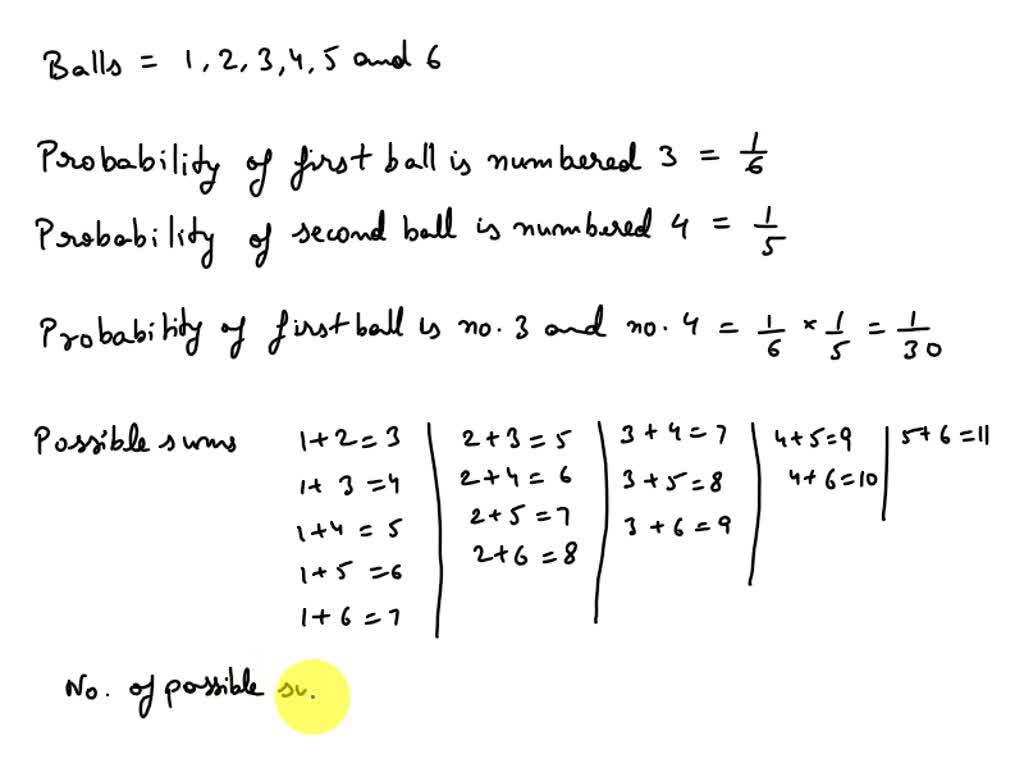 Balls = 1, 2, 3, 4, 5 and 6
Probability of first ball is numbered 3 = 1/6
Probability of second ball is numbered 4 = 1/5
Probability of first ball is no. 3 and no. 4 = 1/6 × 1/5 = 1/30
Possible sums 1+2=3 | 2+3=5 | 3+4=7 | 4+5=9 | 5+6=11
1+3=4 | 2+4=6 | 3+5=8 | 4+6=10
1+4=5 | 2+5=7 | 3+6=9
1+5=6 | 2+6=8
1+6=7
No. of possible su.